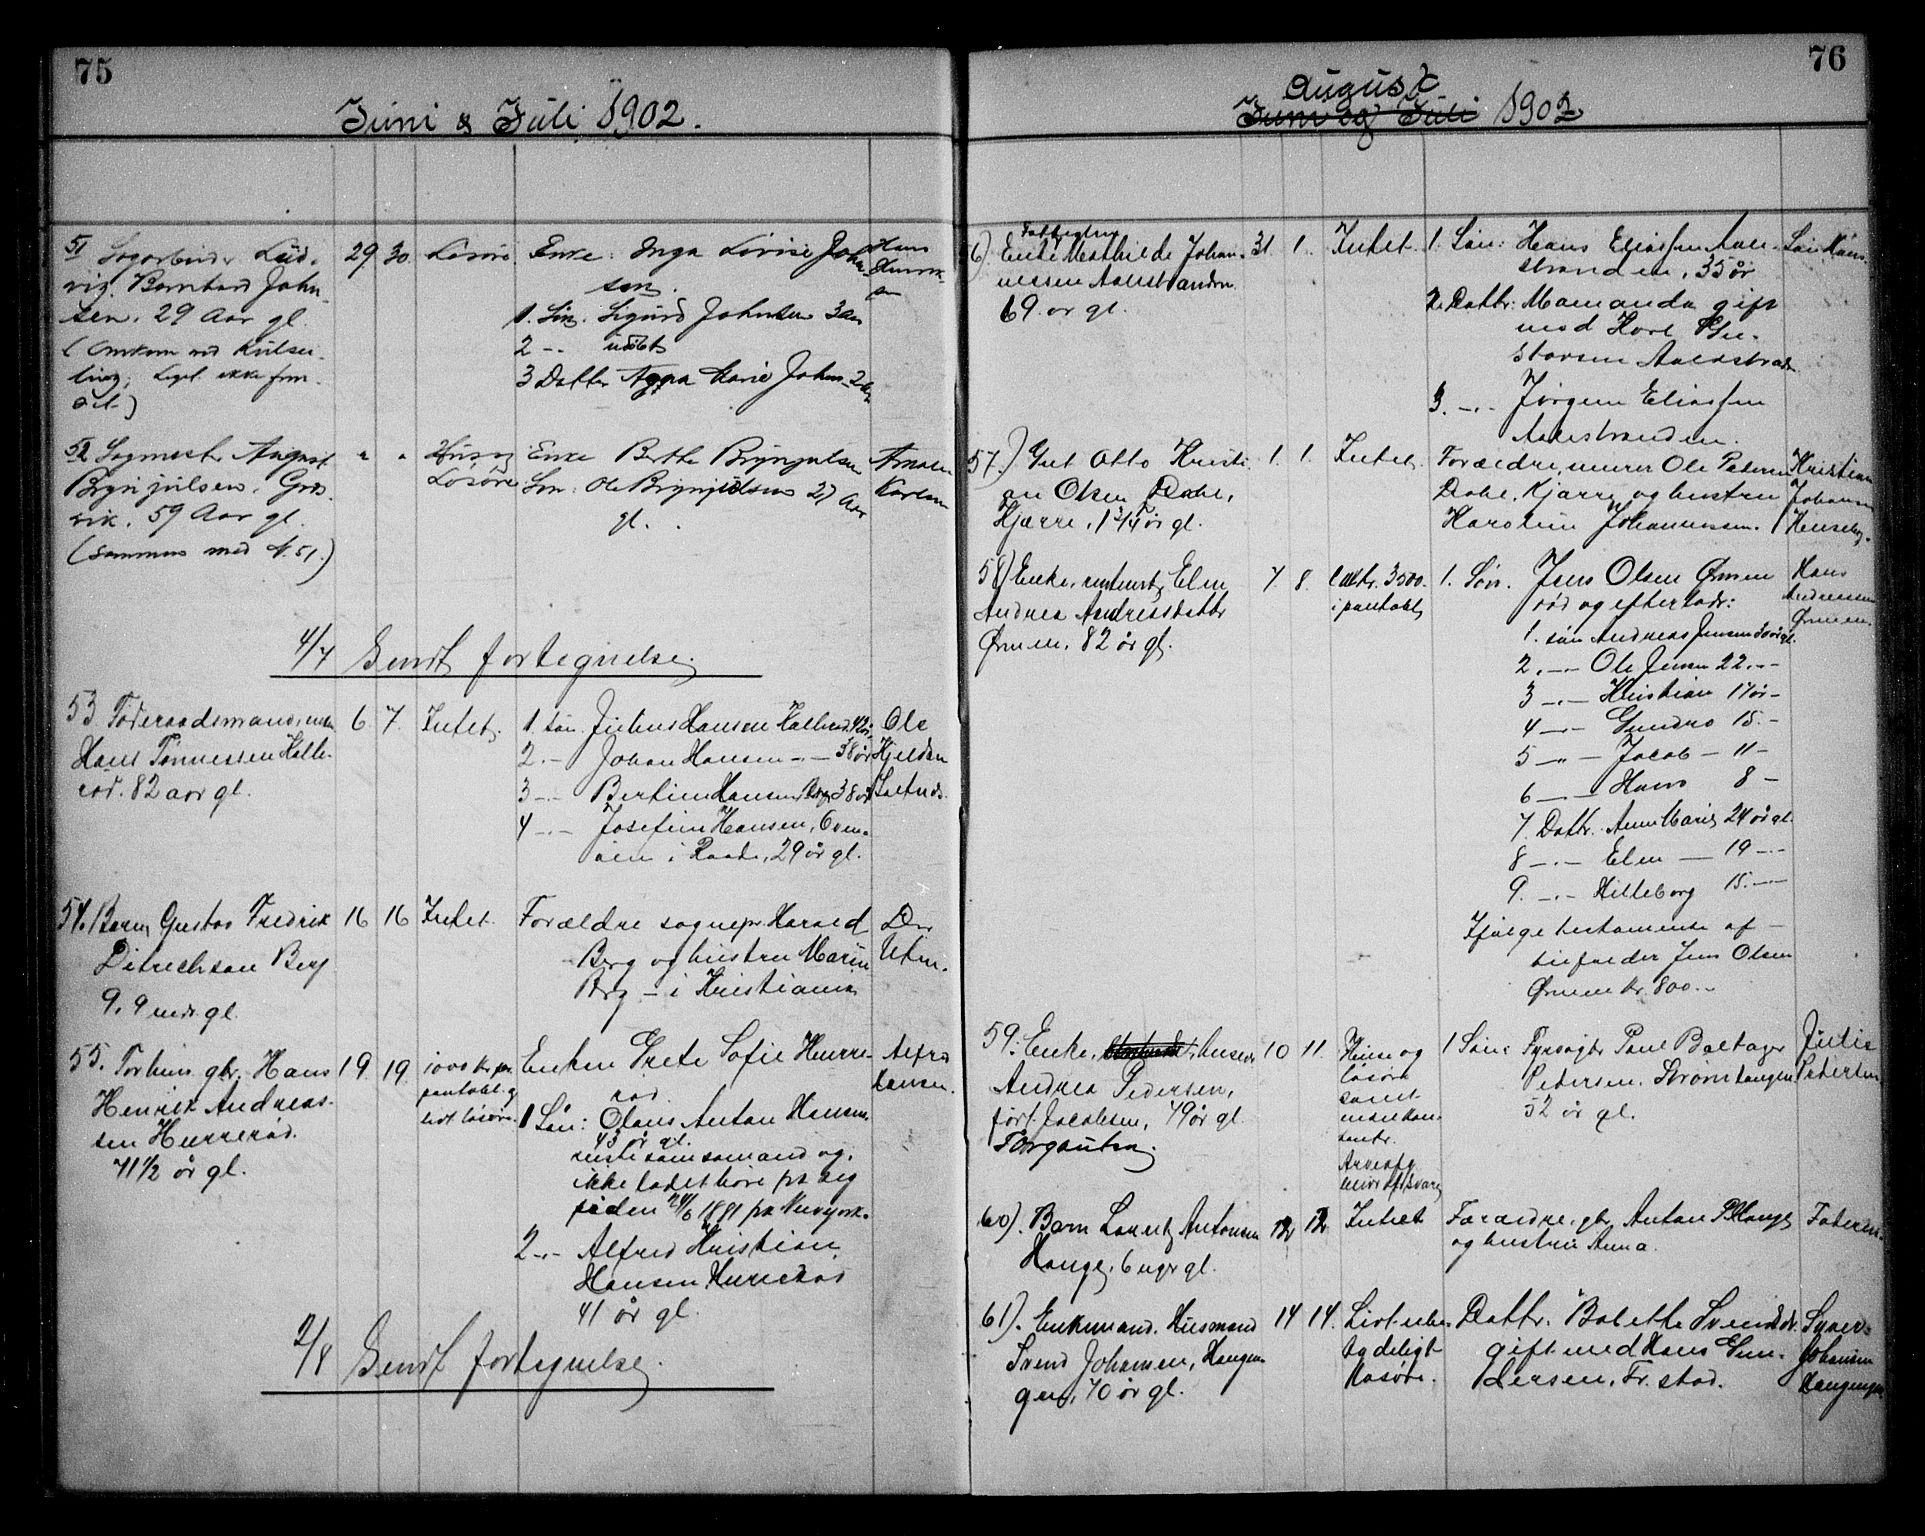 75
Juni & Juli 1902.
51 Sagarbeider Lud-
vig Bernhard John-
sen. 29 Aar gl.
(Omkom ved Kulsei-
ling, Liget ikke fun-
det)
29 30 Løsøre
Enke: Inga Lovise John-
sen.
1. Søn. Sigurd Johnsen 3 Aar
2 -"- udøbt
3 Datter Agna Marie Johns. 2 Aar
Hans
52 Sagmester August
Brynjulsen, Gres-
vik. 59 Aar gl.
(Sammen med N. 51.)
" " Hus og
Løsøre
Enke Berthe Brynjulsen
Søn: Ole Brynjulsen 27 Aar
gl.
Karlsen
4/7 Sendt fortegnelse.
53 Føderaadsmand, enkem.
Hans Tønnessen Halle-
rød. 82 aar gl.
6 7. Intet.
1. søn. Julius Hansen Hallerød 42 år
2. -"- Johan Hansen -"- 38 år
3 -"- Bertine Hansen, Berg 38 år
4 -"- Josefine Hansen,
i Raade, 29 år gl.
Ole
Kjeldsen
Saltnes.
54. Barn, Gustav Fredrik
Ditrichson Berg
9. 9 mdr gl.
16 16 Intet.
Forældre sognepr. Harald
Berg og hustru Marie
Berg - i Kristiania
55. Forhen. gbr. Hans
Henrik Andreas-
sen Hurrerød.
71 1/2 år gl.
19. 19. 1000 kr. pr.
pantobl. og
lidt løsøre.
Enken Grete Sofie Hurre-
rød.
1 Søn: Olaus Anton Hansen
43 år gl.
reiste som sømand og
ikke ladet høre fra sig
siden 24/6 1881 fra Newyork.
2 -"- Alfred Kristian
Hansen Hurrerød
41 år gl.
Alfred
Hansen.
2/8 Sendt fortegnelse.
76
August
Juni og Juli 1902
Fattiglem
6) Enke Mathilde Johan-
nessen Aalestranden
69. år gl.
31. 1. Intet.
1. Søn: Hans Eliassen Aale-
stranden, 35 år
2. Dattr: Mamanda gift
med Karl Kri-
stensen Aalestrand
3. -"- Jørgen Eliassen
Aalestranden.
Søn Hans
57.) Gut Otto Kristi-
an Olsen Dahl,
Kjærre, 1 3/4 år gl.
1. 1. Intet.
Forældre, murer Ole Petersen
Dahl, Kjærre og hustru
Karoline Johannessen.
Kristian
Johansen
58) Enke, Elen
Andrea Andreasdattr
Ørmen, 82 år gl.
7 8. Ca kr. 3500.
i pantobl.
1. Søn. Jens Olsen Ørmen
død og efterlader:
1. søn Andreas Jensen 30 år gl.
2. -"- Ole Jensen 22 -"-
3 -"- Kristian 17 år -
4 -"- Gundro 15. -
5 -"- Jacob - 11 -
6 -"- Hans 8 -
7. Dattr. Anne Marie 24 år gl.
8 -"- Elen - 19 -"-
9. -"- Hilleborg 15. -"-
Ifølge testamente af -
tilfalder Jens Olsen
Ørmen kr. 800. -
Hans
Andreassen
Ørmen.
59. Enke,
Andrea Pedersen,
født Jacobsen, 79 år gl.
10 11. Huse og
løsøre
samt
1 Søn: Fyrvogter Paul Baltazar
Petersen. Strømtangen
52 år gl.
Julie
Petersen
60). Barn Lauritz Antonsen
Hauge, 6 uger gl.
12 12 Intet
Forældre, gbr Anton P. Hauge
og hustru Anna.
Faderen.
61). Enkemand. Husmand
Svend Johansen, Haugen-
gen, 70 år gl.
14 14. Lidt ube-
tydeligt
løsøre.
Dattr. Bolette Svendsdr.
gift med Hans Gun-
dersen, Fr. stad.
Johansen